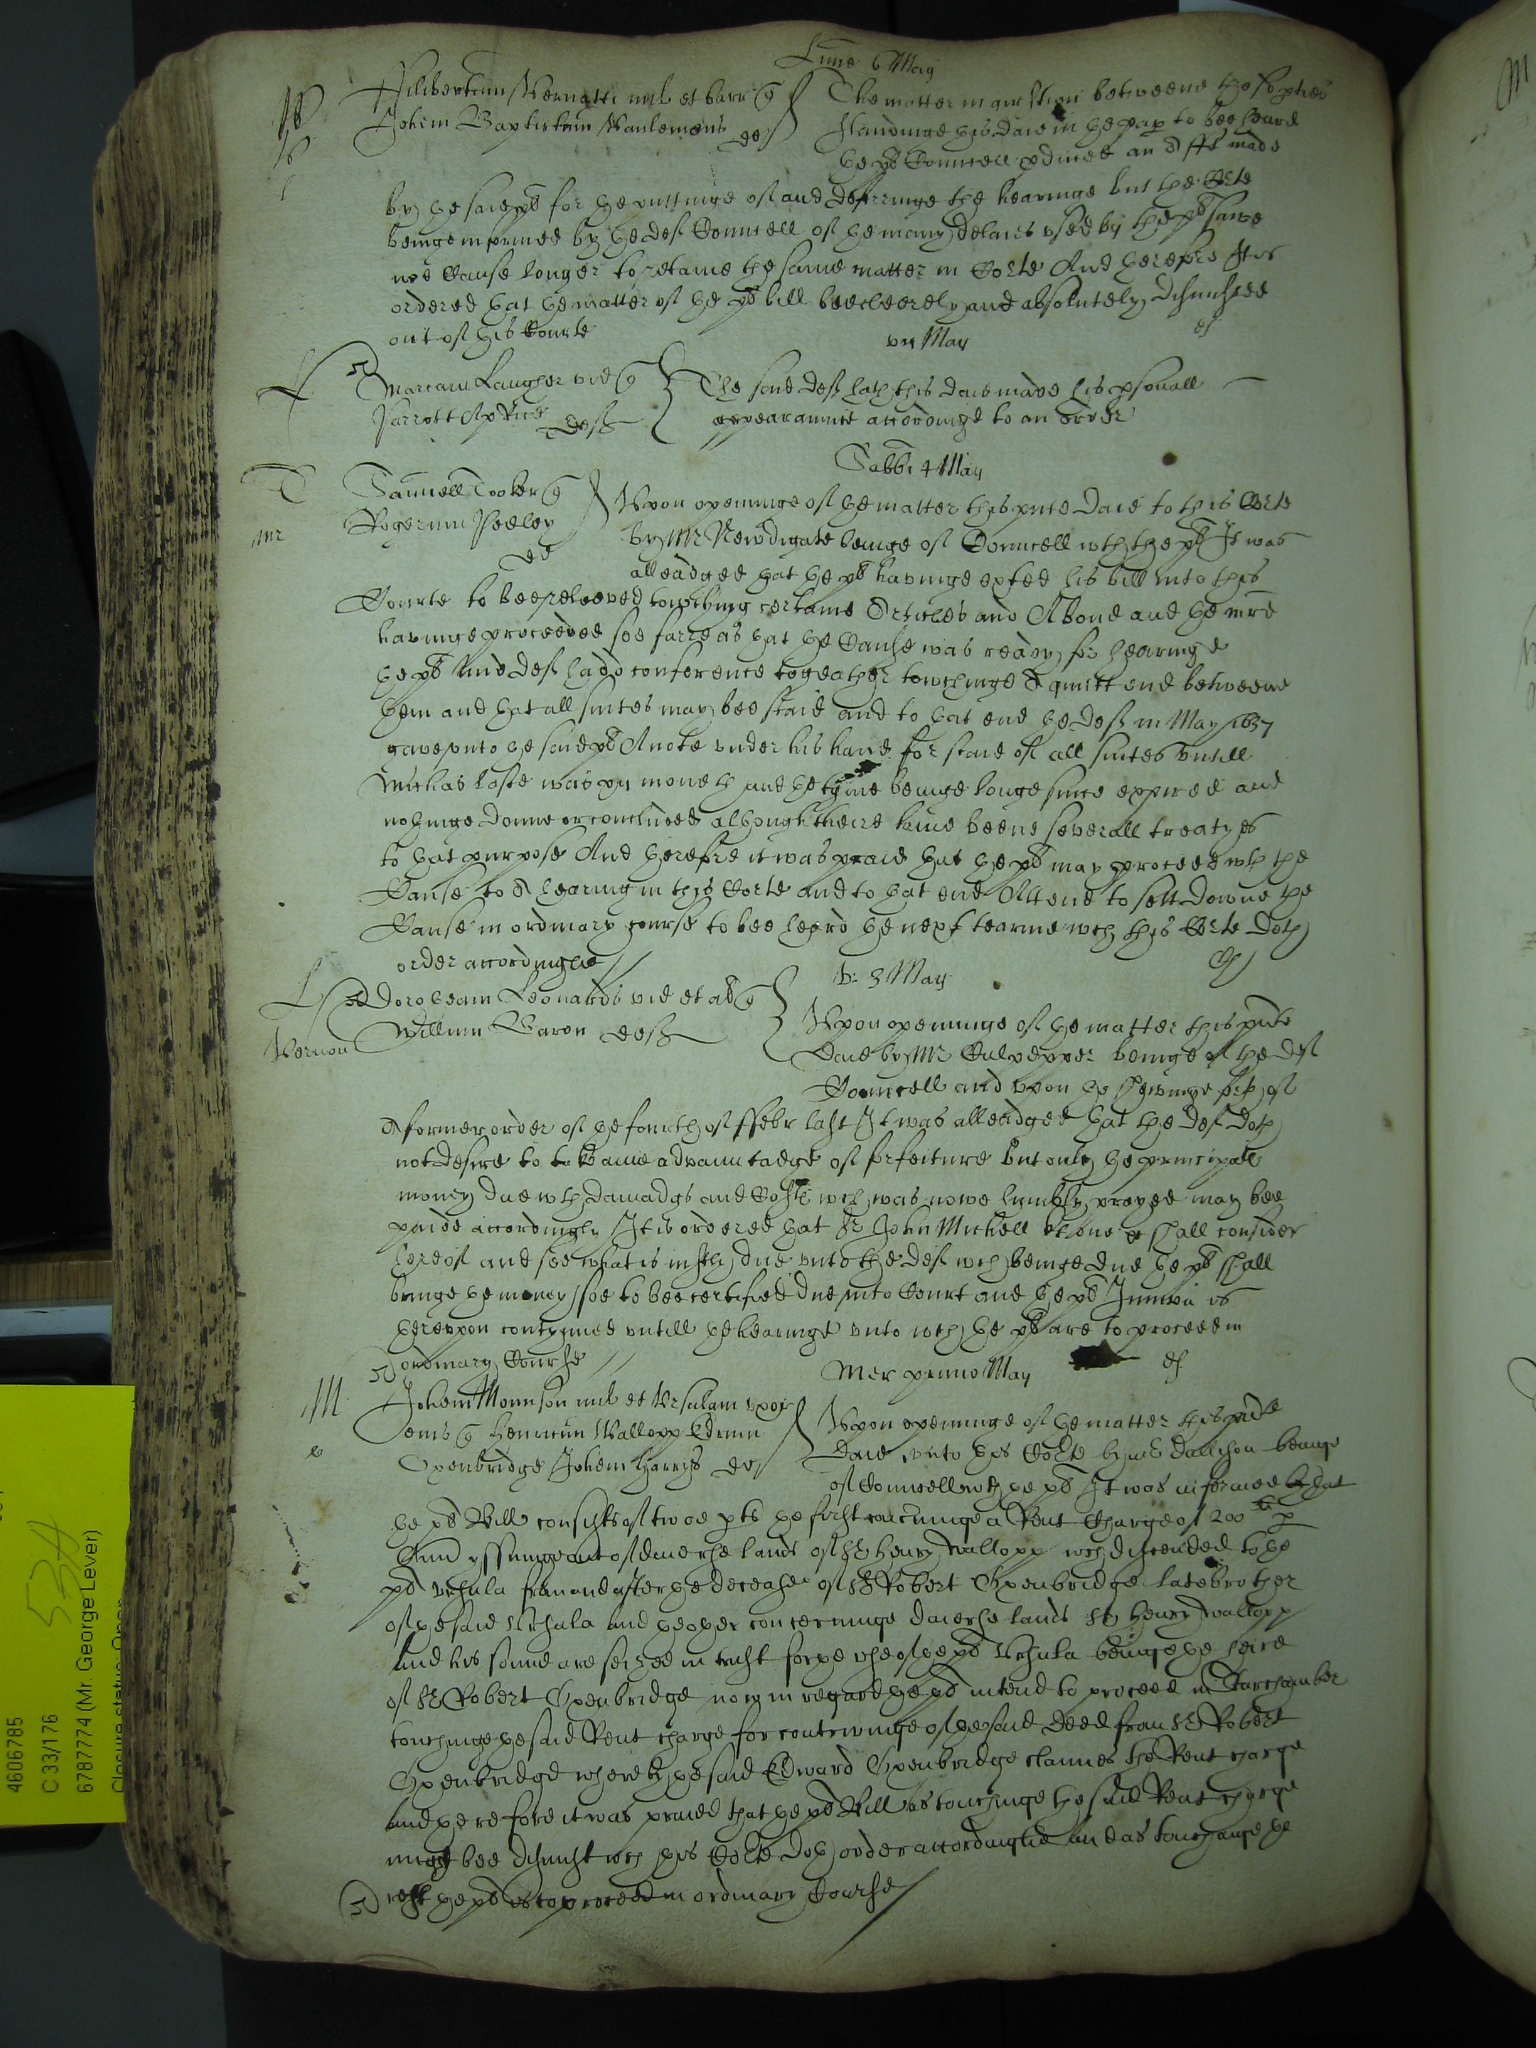 Lune 6 May
Philibertum Vernatti mil et barr q
Johem Baptistam Vanlemens def
The matter in question betweene the said pties
standinge this daie in the pap to bee heard
the plt Councell pduced an Afft made
by the saie plt for the puttinge of and deferringe the hearinge but the Corte
beinge informed by the def Councell of the many delaies used by the plt sawe
noe Cause longer to retaine the same matter in Corte And therefore It is
ordered that the matter of the plt bill bee cleerely and absolutely dismissed
out of this Courte
vii May
Mariam Laugher vid q
Jarrott Aprice deft
The said deft hath this daie made his psonall
appearaunce accordinge to an order
Sabbi 4 May
Samuell Tooker q
Rogerum Seeley
def
Upon openinge of the matter this pnte daie to this Corte
by Mr Newdigate beinge of Councell wth the plt It was
alleadged that the plt havinge exhted his bill into this
Courte to bee releeved touching certaine Articles and A bond and the mre
havinge proceeded soe farre as that the Cause was ready for hearinge
the plt and deft had conference togeather towchinge A quiett end betweene
them and that all suites may bee staid and to that end the deft in May 1637
gave unto the said plt A note under his hand for staie of all suites untill
Michas laste was xii moneth and the tyme beinge longe since expired and
nothinge donne or concluded although there have beene severall treatyes
to that purpose And therefore it was praied that the plt may proceed wth the
Cause to A hearing in this Corte and to that end Attend to sett downe the
Cause in ordinary course to bee heard the next tearme wch this Corte doth
order accordinglie
V: 3 May
Vernon
Dorotheam Leonards vid et al q
Willium Baron deft
Upon openinge of the matter this pnte
daie by Mr Culpepper beinge of the deft
Councell and upon the shewinge forth of
A former order of the fourth of ffebr last It was alleadged that the deft doth
not desire to take advauntadge of forfeiture but only the principale
money due wth damadgs and Costs wch was nowe humbly prayed may bee
paide accordingly It is ordered that Sr John Michell shall consider
hereof and see what is justly due unto the deft wch beinge due the plt shall
bringe the money soe to bee certified due into Court and the plt Juncon is
thereupon contynued untill the hearinge unto wch the plt are to proceed in
ordinary Course
Mer primo May
Johem Mounson mil et Ursulam uxor
eius q Henricum Wallopp Edrum
Oxenbridge Johem Harrys def
Upon openinge of the matter this pnte
daie unto this Corte by Mr beinge
of Councell wth the plt It was informed that
the plt Bill consists of twoe pts the first concerninge a Rent Charge of 200 li p
Ann yssuinge out of diverse lands of Sr Henry Wallopp wch discended to the
plt Ursula from and after the decease of Sr Robert Oxenbridge late brother
of the said Ursula and the other concerninge diverse lands Sr Henry Wallopp
and his sonne are seized in trust for the use of the plt Ursula beinge the heire
of Sr Robert Oxenbridge now in regard the plt intend to proceed in Starchamber
touchinge the said Rent charge for contrivinge of the said deed from Sr Robert
Oxenbridge whereby the said Edward Oxenbridge claimes the Rent charge
and therefore it was praied that the plt Bill as touchinge the said Rent charge
might bee dismist wch this Corte doth order accordinglie and as touchinge the
rest the plt is to proceed in ordinary Course
4606785
C 33/176
6787774 (Mr. George Lever)
Closure status: Open
534